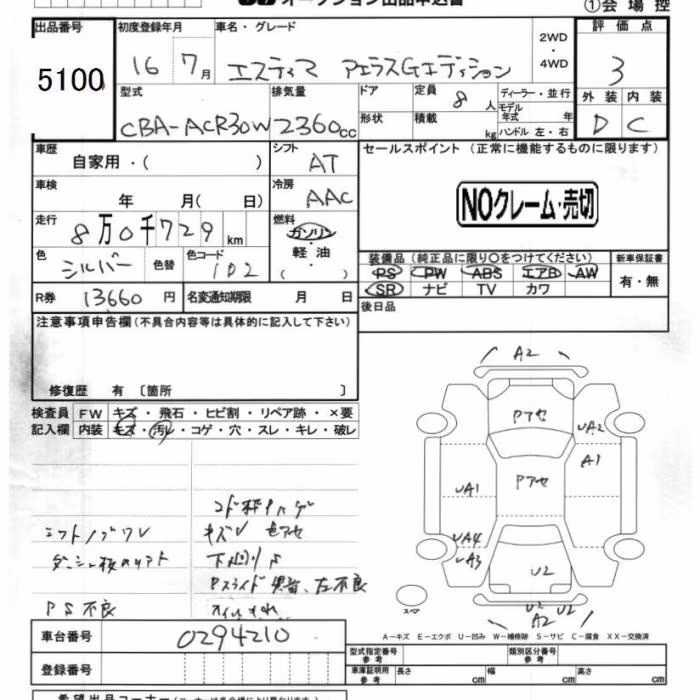 オークション出品申込書 ①会場控
出品番号 初度登録年月 車名・グレード 2WD・4WD 評価点
5100 16 7月 エスティマ アエラスGエディション 3
型式 排気量 ドア 定員 8人 ディーラー・並行 外装 内装
CBA-ACR30W 2360cc 形状 積載 kg モデル年式 年 ハンドル 左・右 D C
車歴 自家用・( ) シフト AT セールスポイント(正常に機能するものに限ります)
車検 年 月( 日) 冷房 AAC NOクレーム・売切
走行 8万0千729km 燃料 ガソリン・軽油・( )
色 シルバー 色替 色コード 1D2
装備品(純正品に限り○をつけてください) 新車保証書
PS PW ABS エアB AW 有・無
SR ナビ TV カワ
R券 13660円 名変通知期限 月 日 後日品
注意事項申告欄(不具合内容等は具体的に記入して下さい)
修復歴 有〔箇所 〕
検査員記入欄 FW キズ・飛石・ヒビ割・リペア跡・×要
内装 キズ・汚レ・コゲ・穴・スレ・キレ・破レ
シフトノブワレ キズV 色アセ
下廻りサ
Pスライド異音、左不良
PS不良 オイルもれ
A2
Pアセ UA2
A1
UA1 Pアセ
UA4
UA3 U2
U2 U2
A2
スペア
A-キズ E-エクボ U-凹み W-補修跡 S-サビ C-腐食 XX-交換済
車台番号 0294210 型式指定番号 参考 類別区分番号 参考
登録番号 車庫証明 参考 長さ cm 幅 cm 高さ cm
希望出品コーナー